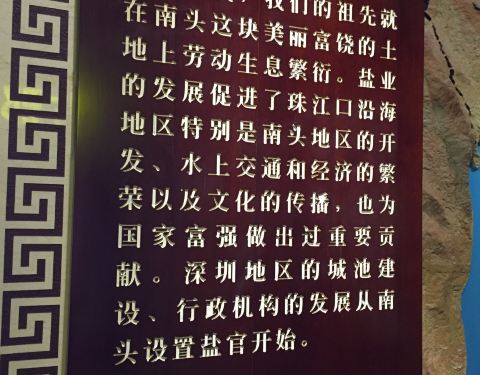 我们的祖先就
在南头这块美丽富饶的土
地上劳动生息繁衍。盐业
的发展促进了珠江口沿海
地区特别是南头地区的开
发、水上交通和经济的繁
荣以及文化的传播，也为
国家富强做出过重要贡
献。深圳地区的城池建
设、行政机构的发展从南
头设置盐官开始。